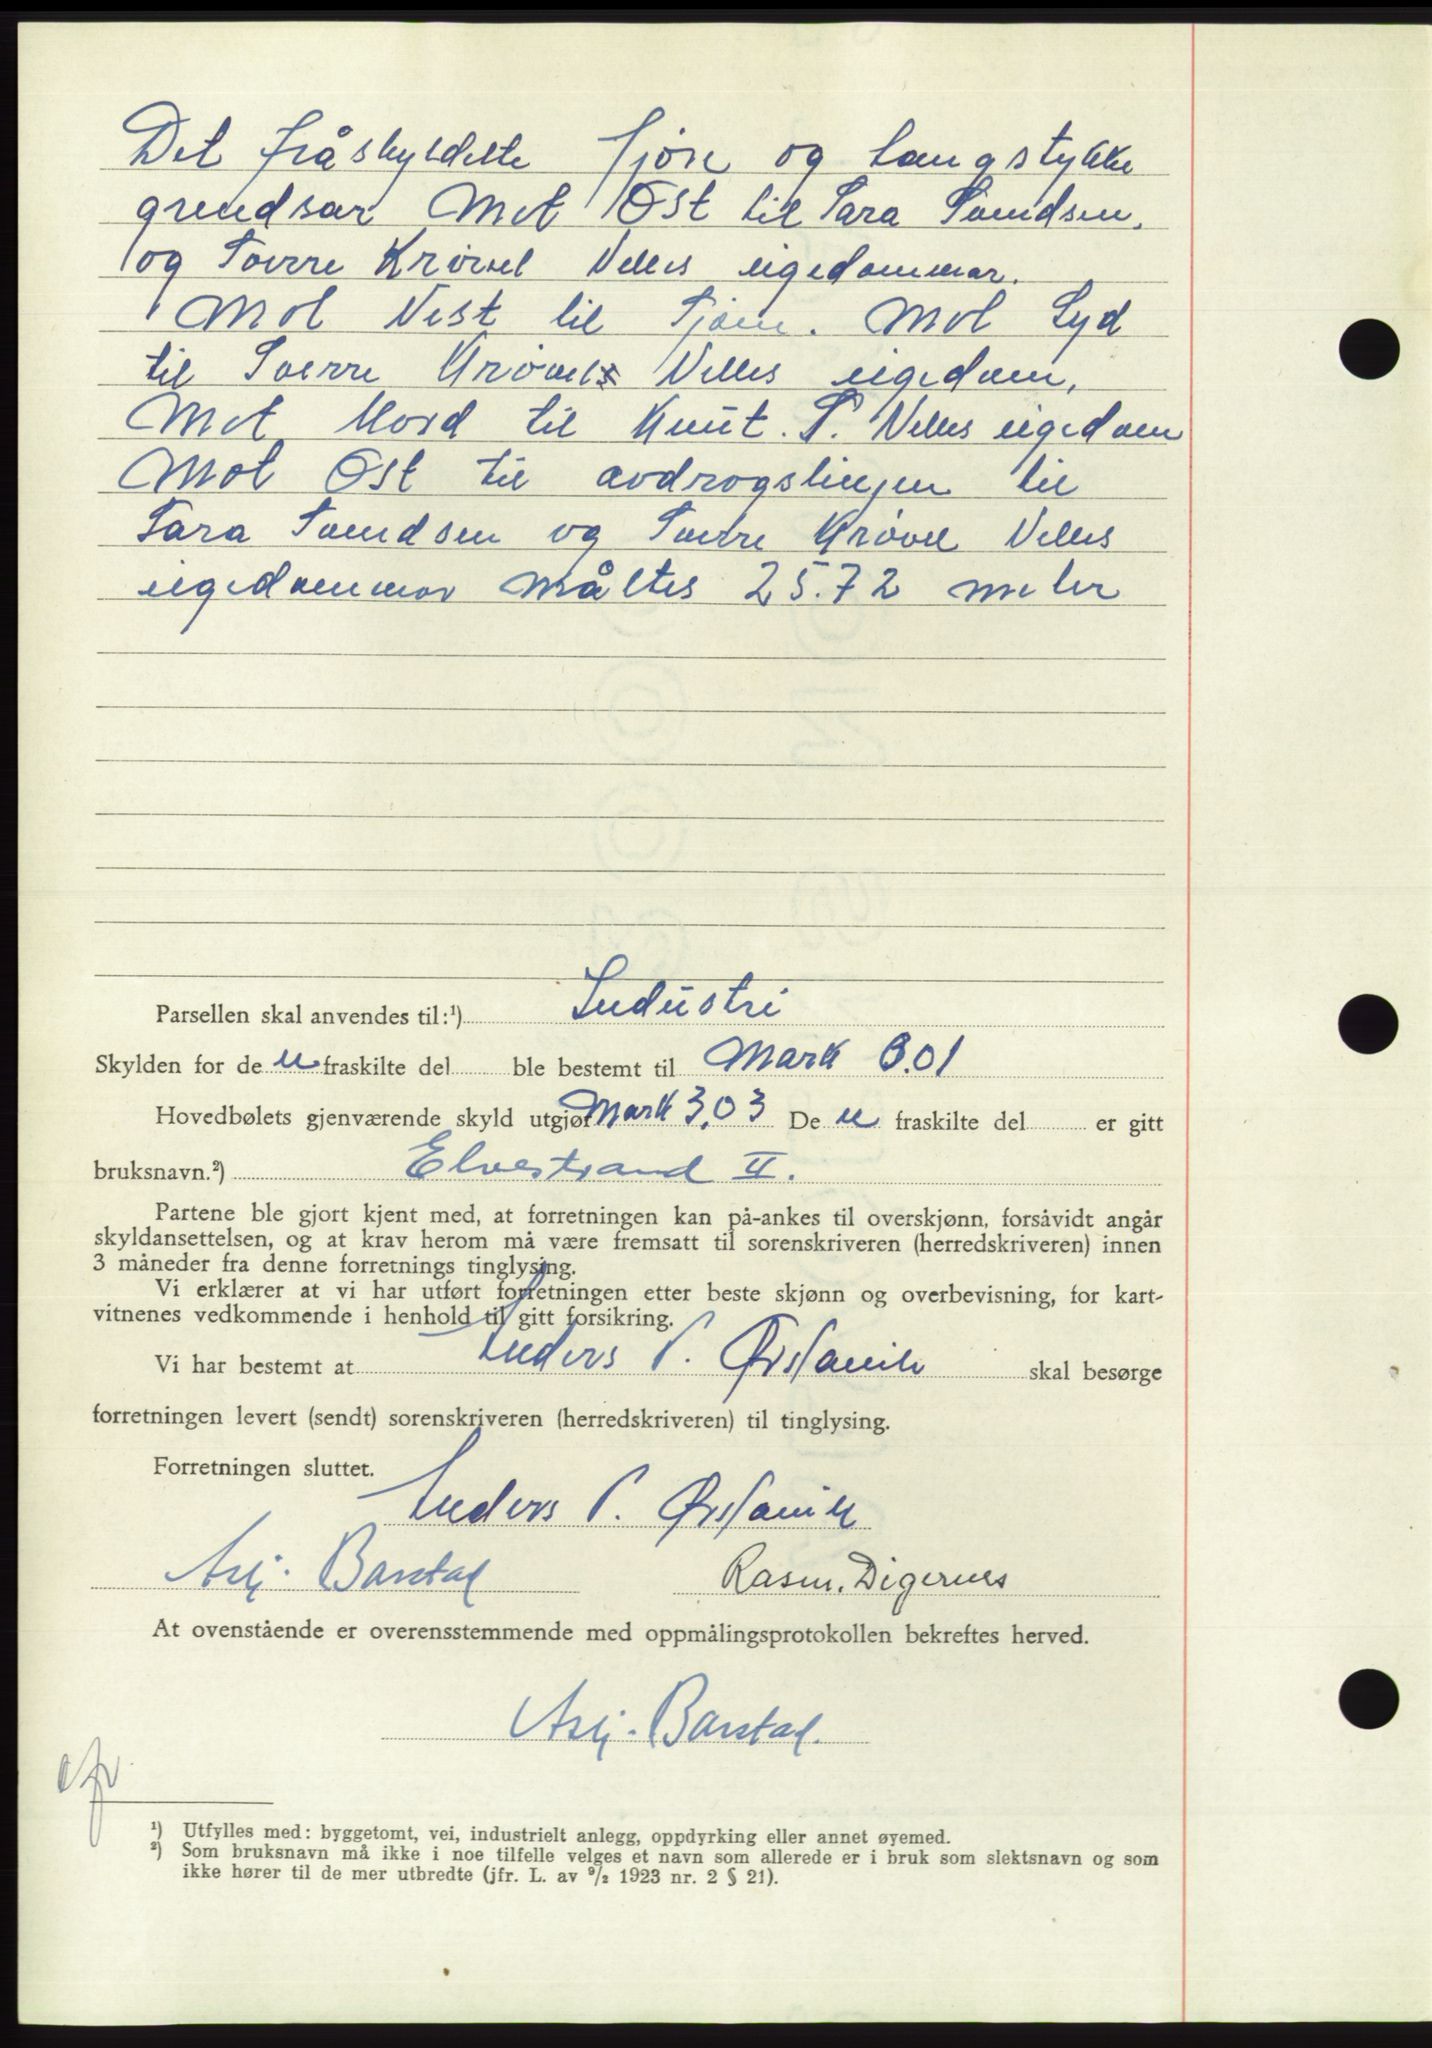 Det fråskyldelte Sjøre og langstykke
grendsar Mot Øst til Sara Svendsen.
og Sverre Krøvel Velles eigedommar.
Mot Vest til Sjøen. Mot Syd
til Sverre Krøvels Velles eigedom.
Mot Nord til Knut. S. Velles eigedom
Mot Øst til avdragslinjen til
Sara Svendsen og Sverre Krøvel Velles
eigedommar måltes 25.72 meter
Parsellen skal anvendes til:¹) Industri
Skylden for de n fraskilte del ble bestemt til Mark 0.01
Hovedbølets gjenværende skyld utgjør Mark 3,03 De n fraskilte del er gitt
bruksnavn.²) Elvestrand II.
Partene ble gjort kjent med, at forretningen kan på-ankes til overskjønn, forsåvidt angår
skyldansettelsen, og at krav herom må være fremsatt til sorenskriveren (herredskriveren) innen
3 måneder fra denne forretnings tinglysing.
Vi erklærer at vi har utført forretningen etter beste skjønn og overbevisning, for kart-
vitnenes vedkommende i henhold til gitt forsikring.
Vi har bestemt at Anders P. Ørstavik skal besørge
forretningen levert (sendt) sorenskriveren (herredskriveren) til tinglysing.
Forretningen sluttet.
Anders P. Ørstavik
Asbj. Barstad Rasm. Digernes
At ovenstående er overensstemmende med oppmålingsprotokollen bekreftes herved.
Asbj. Barstad.
¹) Utfylles med: byggetomt, vei, industrielt anlegg, oppdyrking eller annet øyemed.
²) Som bruksnavn må ikke i noe tilfelle velges et navn som allerede er i bruk som slektsnavn og som
ikke hører til de mer utbredte (jfr. L. av ⁹/₂ 1923 nr. 2 § 21).